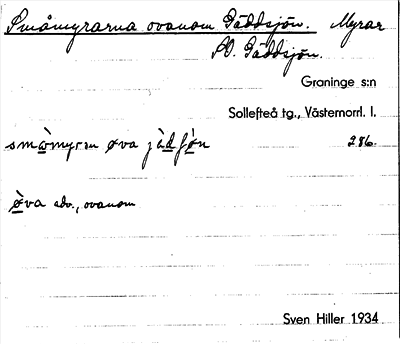 Småmyrarna ovanom Gäddsjön. Myrar
SO. Gäddsjön.
Graninge s:n
Sollefteå tg., Västernorrl. l.
286.
øva adv., ovanom
Sven Hiller 1934